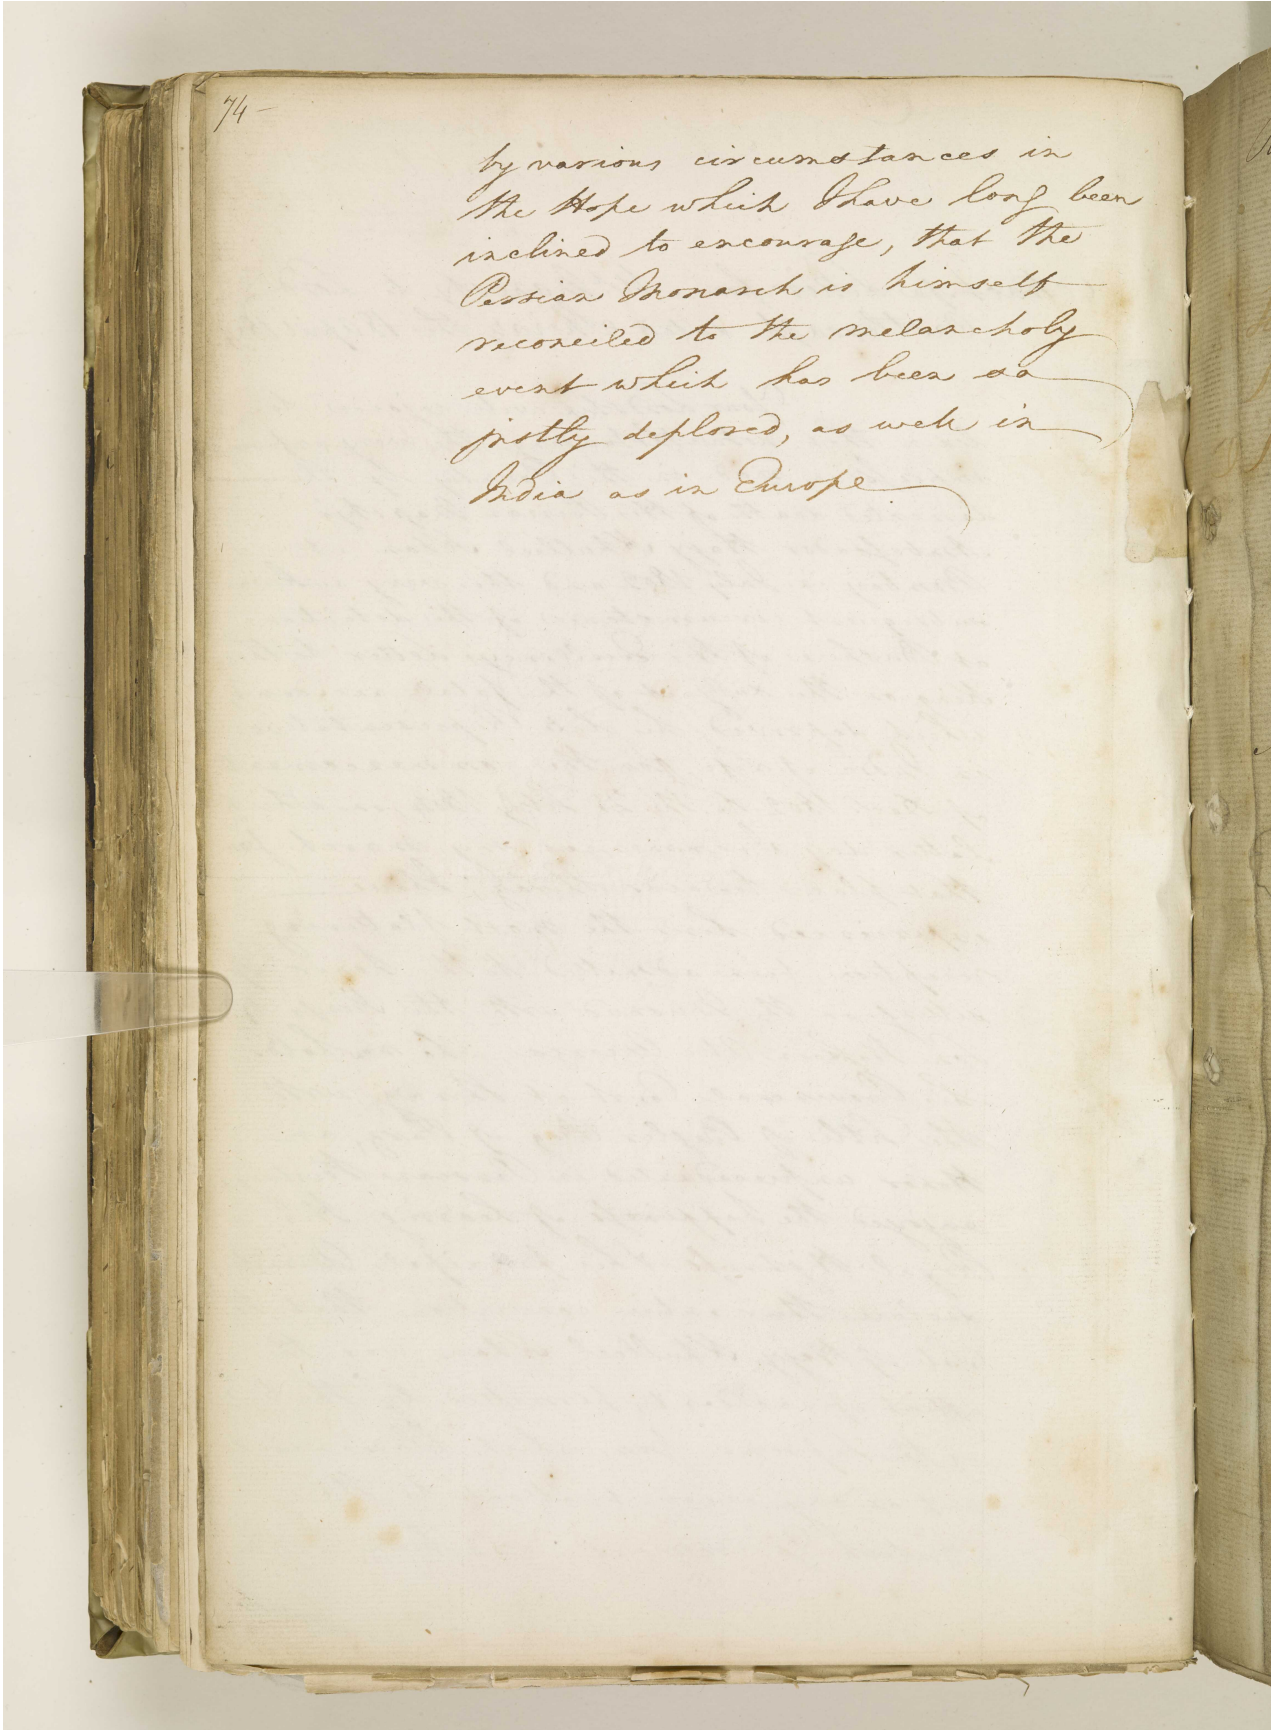 74-
by various circumstances in
the Hope which I have long been
inclined to encourage, that the
Persian Monarch is himself
reconciled to the melancholy
event which has been so
justly deplored, as well in
India as in Europe